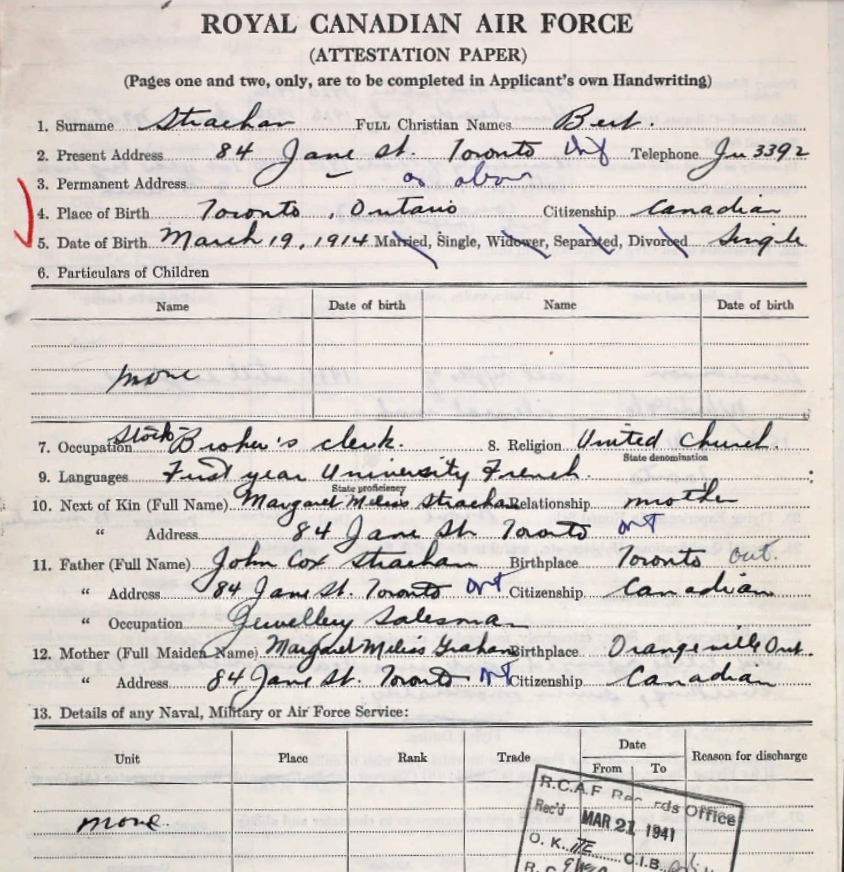 ROYAL CANADIAN AIR FORCE
(ATTESTATION PAPER)
(Pages one and two, only, are to be completed in Applicant's own Handwriting)
1. Surname Strachan FULL Christian Names Bert.
2. Present Address 84 Jane St. Toronto Ont Telephone Ju 3392
3. Permanent Address as above
4. Place of Birth Toronto, Ontario Citizenship Canadian
5. Date of Birth March 19, 1914 Married, Single, Widower, Separated, Divorced Single
6. Particulars of Children
Name Date of birth Name Date of birth
none
7. Occupation Stock Broker's clerk. 8. Religion United Church.
State denomination
9. Languages First year University French.
State proficiency
10. Next of Kin (Full Name) Margaret Meliss Strachan Relationship mother
" Address 84 Jane St Toronto ont
11. Father (Full Name) John Cox Strachan Birthplace Toronto Ont.
" Address 84 Jane St. Toronto Ont Citizenship Canadian
" Occupation Jewellery Salesman
12. Mother (Full Maiden Name) Margaret Meliss Graham Birthplace Orangeville Ont.
" Address 84 Jane St. Toronto Ont Citizenship Canadian
13. Details of any Naval, Military or Air Force Service:
Unit Place Rank Trade Date Reason for discharge
From To
none.
R.C.A.F Records Office
Rec'd MAR 21 1941
O. K. C.I.B.
R. C